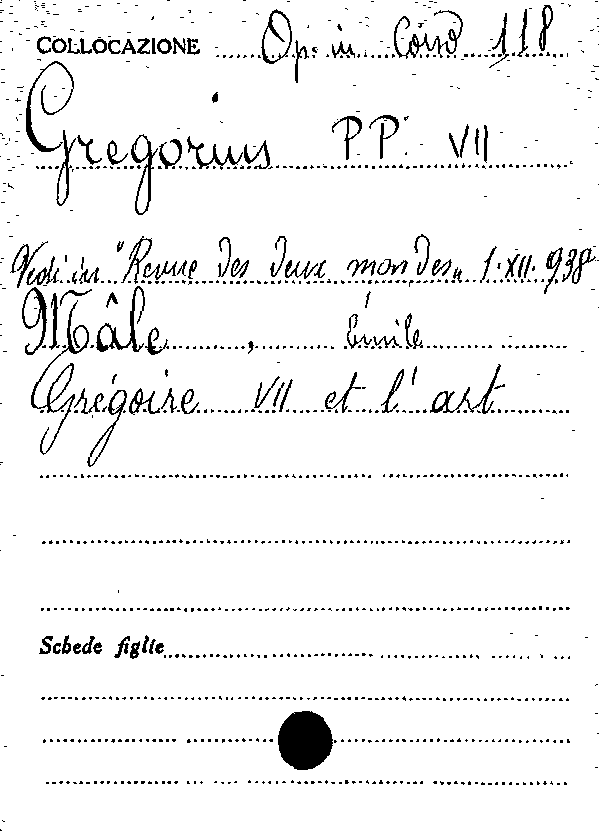 COLLOCAZIONE Op. in Corso 118
Gregorius PP. VII
Vedi in "Revue des deux mondes" 1.XII.938
Mâle, Émile
Grégoire VII et l'art
Schede figlie